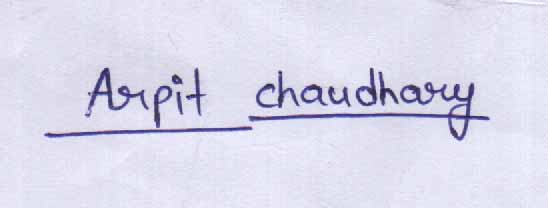 Arpit chaudhary